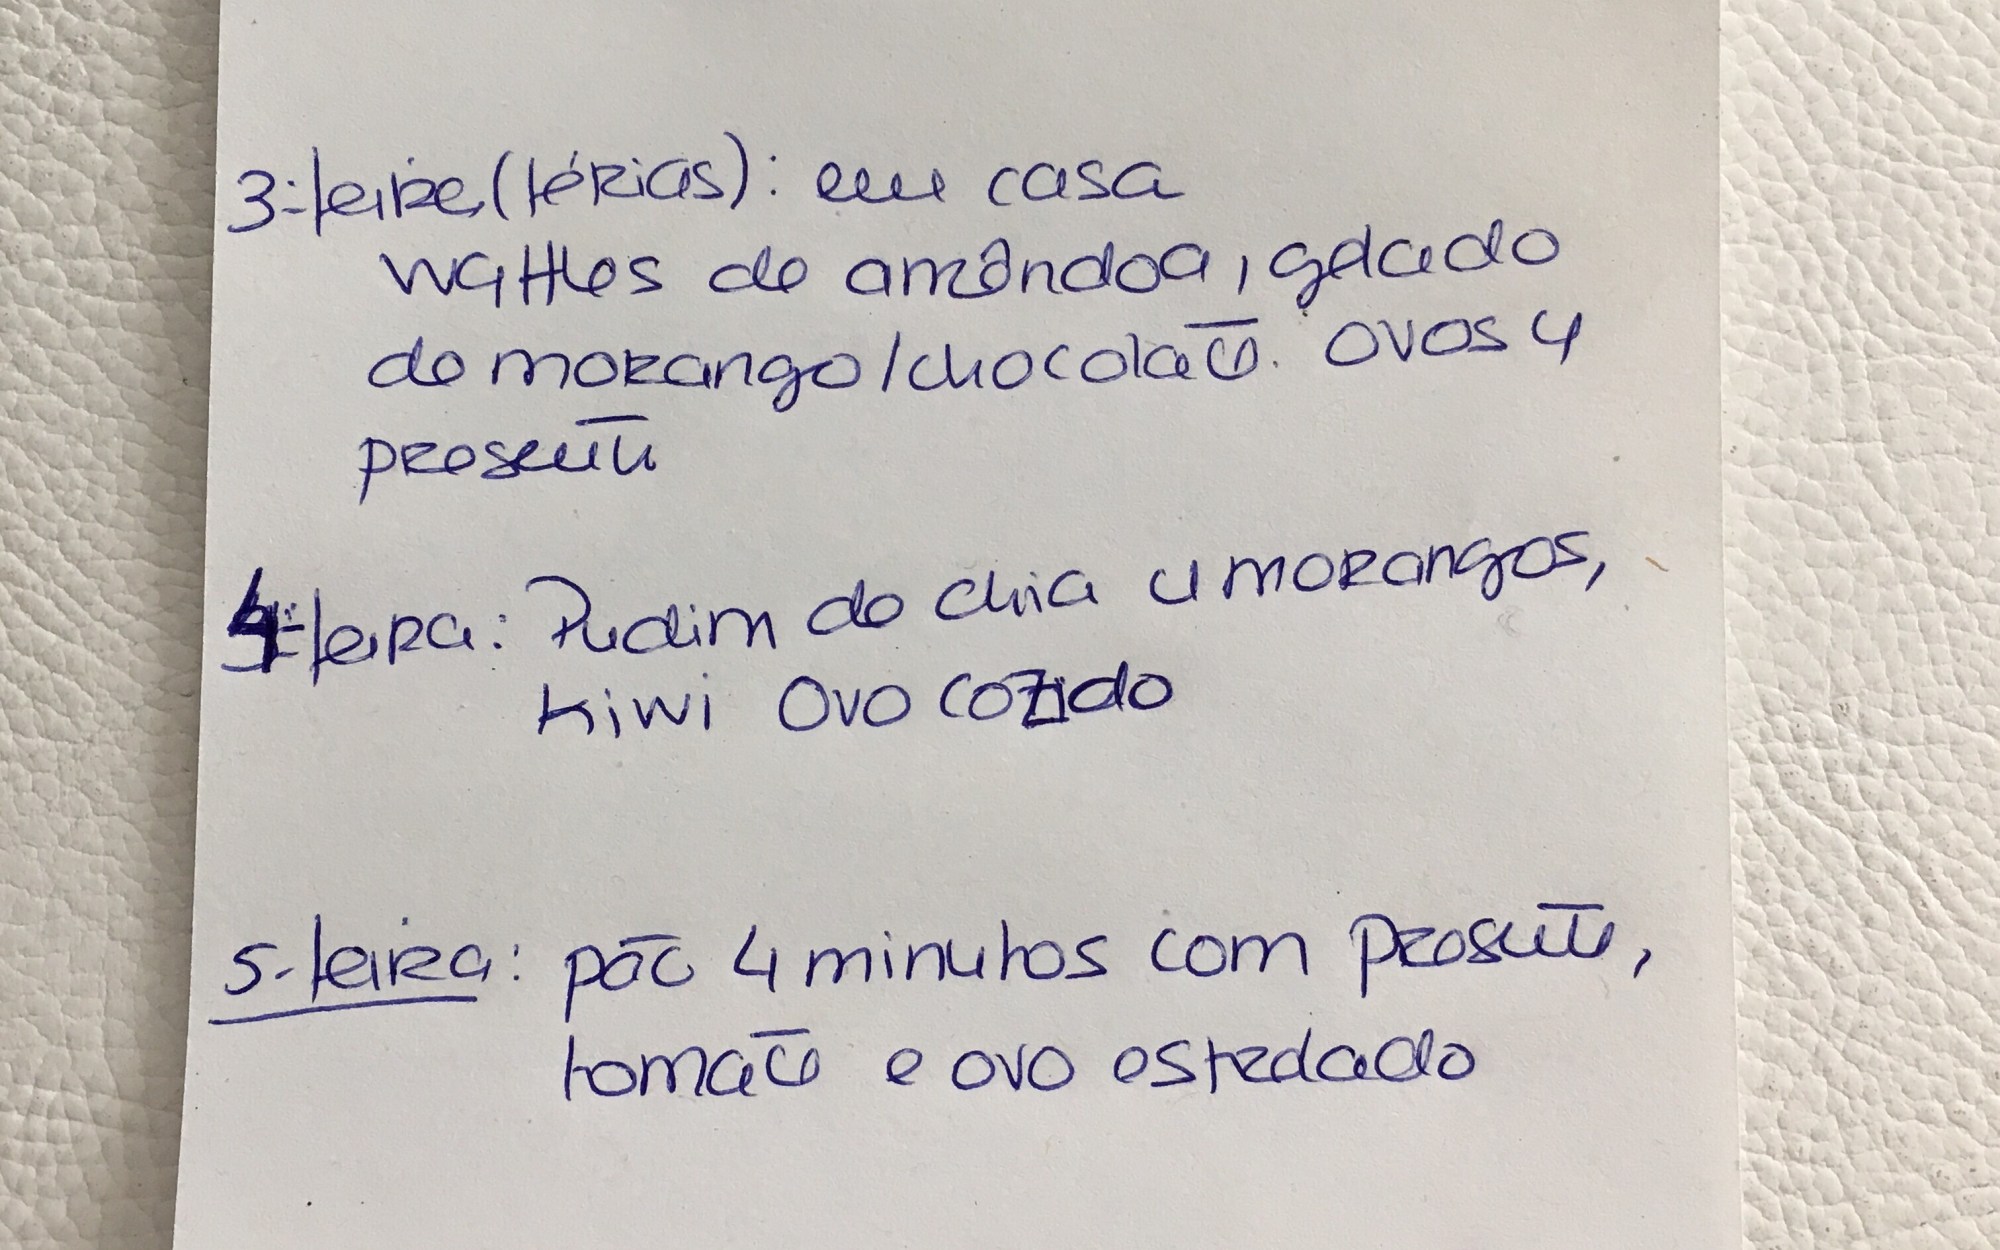 3-feira (férias): em casa
waffles de amêndoa, gelado
de morango/chocolate. ovos c/
presunto
4-feira: Pudim de chia c/ morangos,
kiwi ovo cozido
5-feira: pão 4 minutos com presunto,
tomate e ovo estrelado